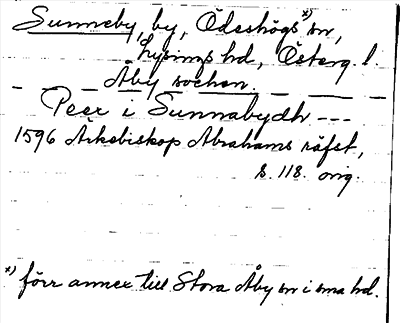 Sunneby by, Ödeshögs *) sn,
Lysings hd, Österg. l.
Åby socken.
Peer i Sunnabydh ---
1596 Arkebiskop Abrahams räfst,
s. 118. orig.
*) förr annex till Stora Åby sn i sma hd.